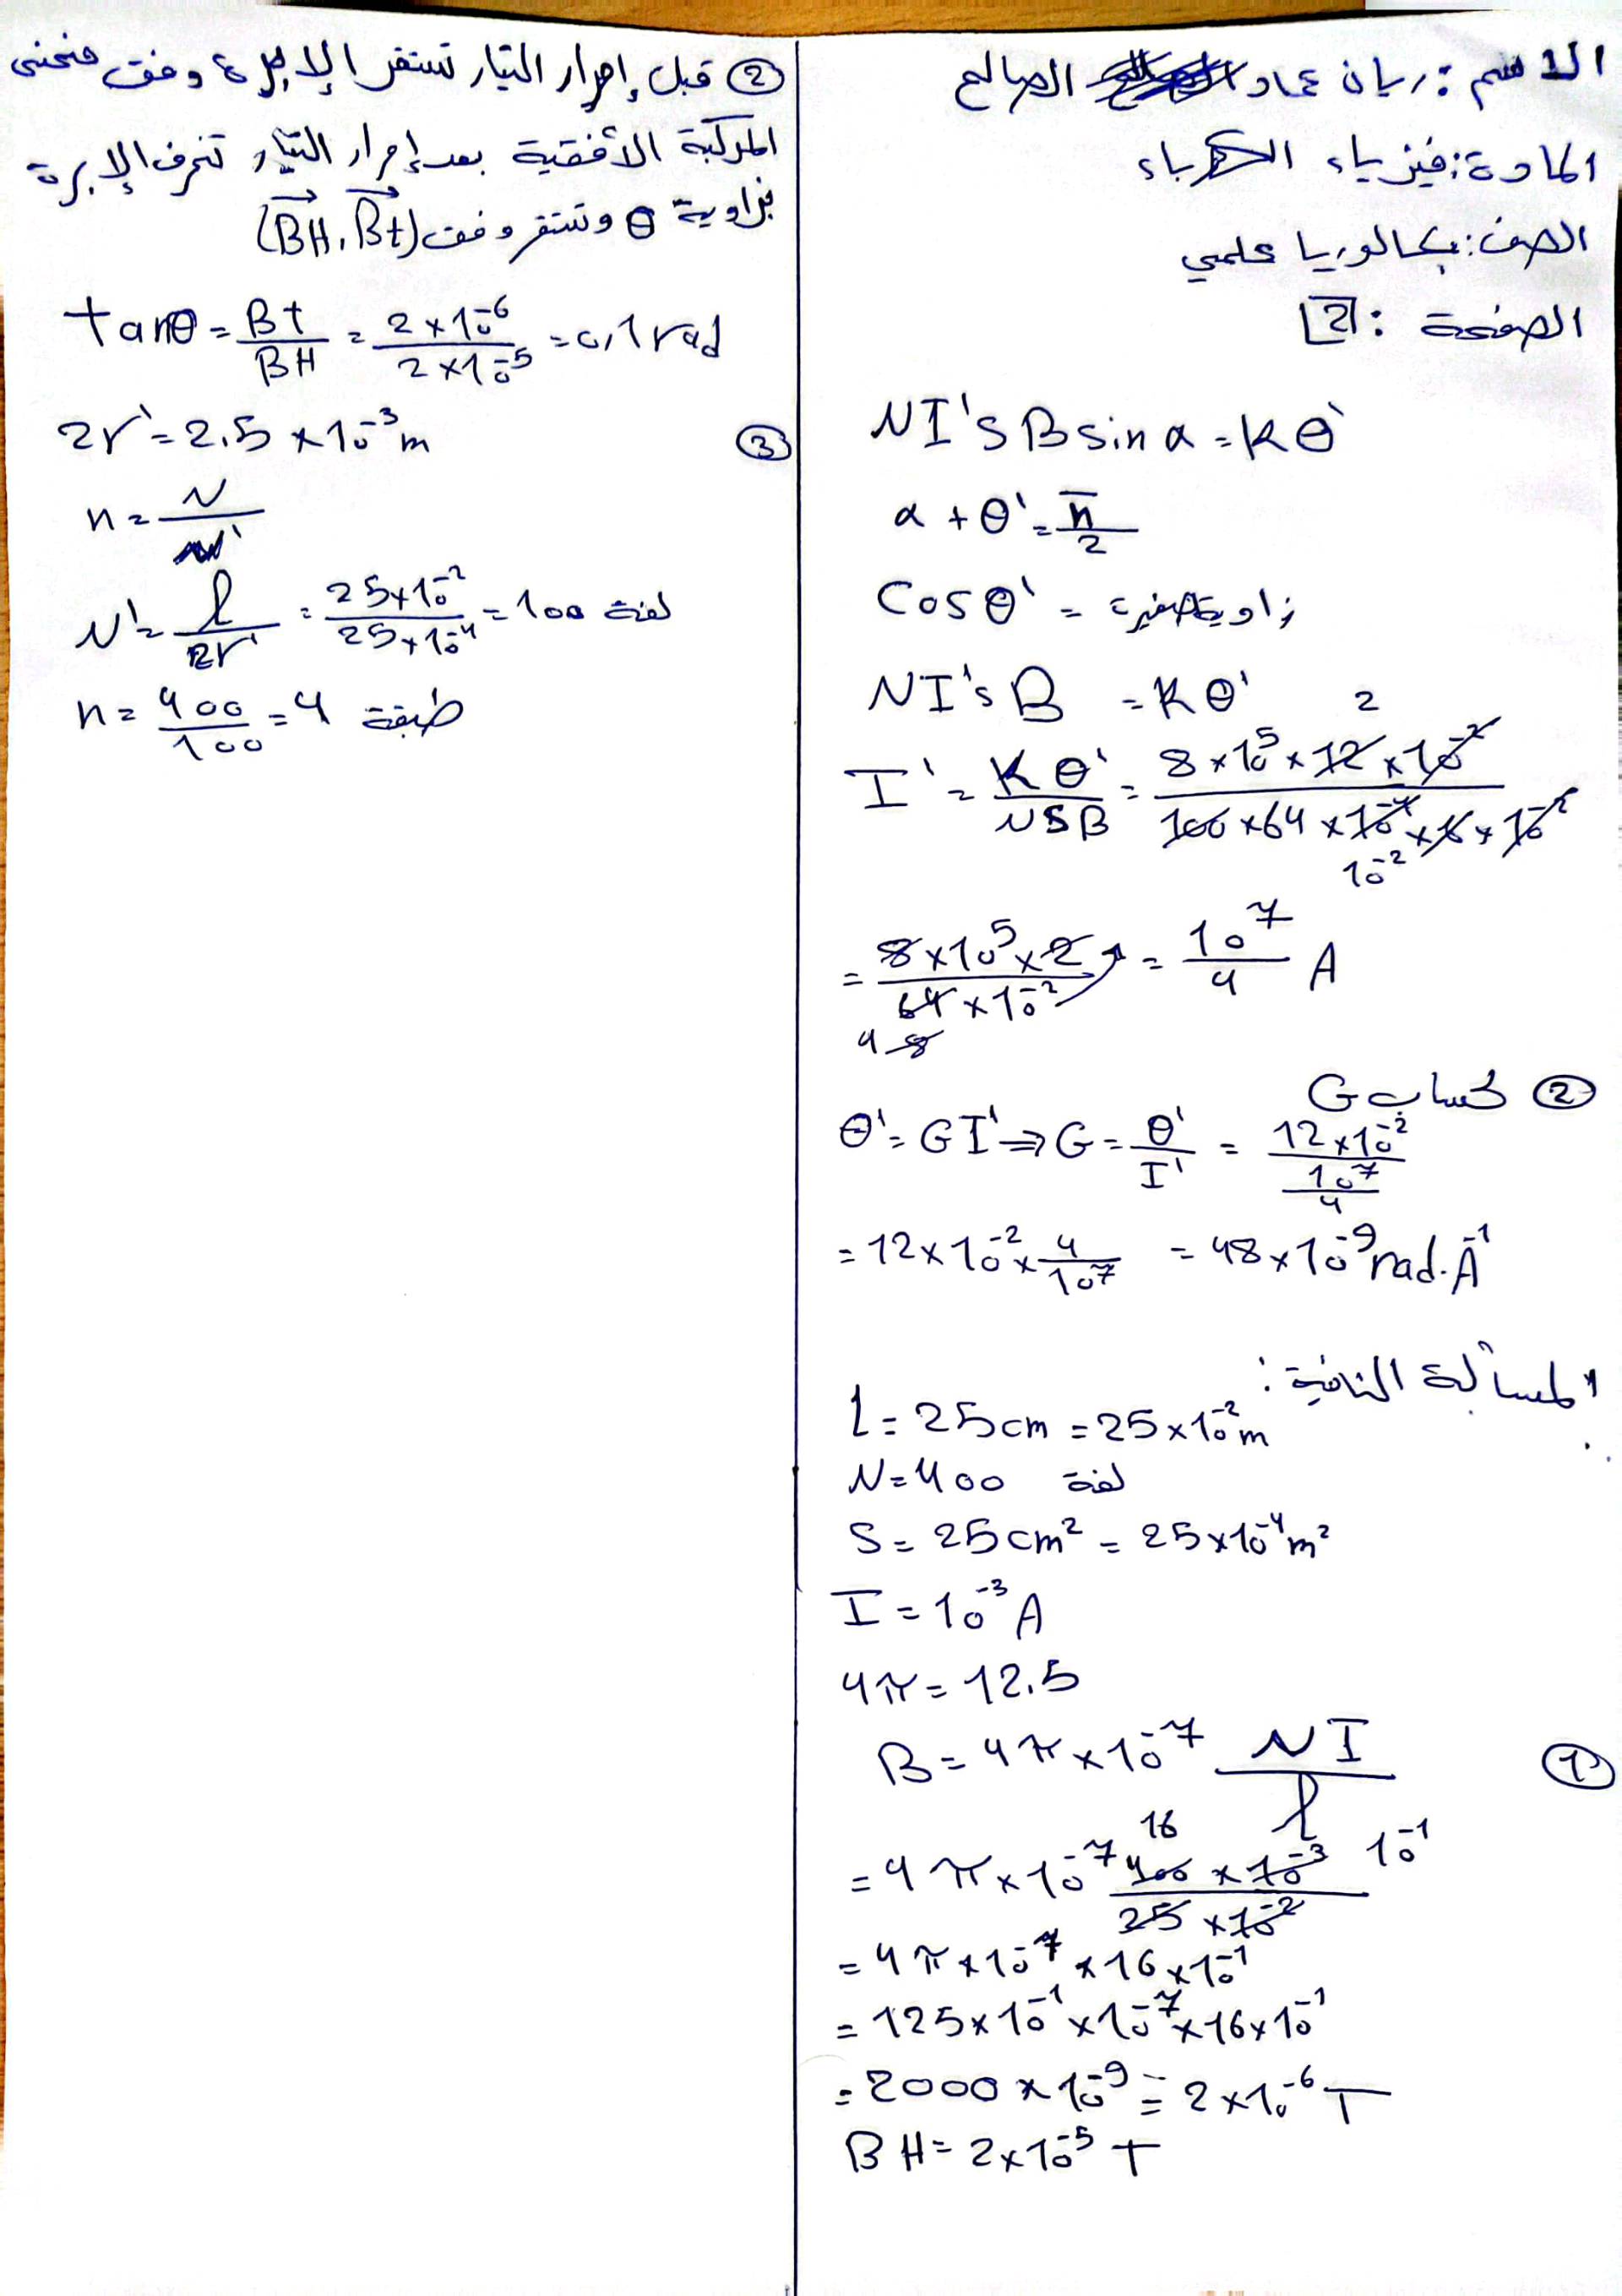 الاسم: ريان عماد الصالح
المادة: فيزياء الكهرباء
الصف: بكالوريا علمي
الصفحة: 2
NI'sB sin α = Kθ'
α + θ' = π/2
cos θ' = زاوية صغيرة
NI'sB = Kθ'
I' = Kθ'/NSB = 8×10^5 × 12 × 10^-2 / 100×64×10^-4×6×10^-2
2
10^-2
= 8×10^5×2 / 64×10^-2 = 10^7/4 A
4 8
② حساب G
θ' = GI' ⇒ G = θ'/I' = 12×10^-2 / (10^7/4)
= 12×10^-2 × 4/10^7 = 48×10^-9 rad.A^-1
المسألة الثانية:
l = 25cm = 25×10^-2 m
N = 400 لفة
S = 25cm² = 25×10^-4 m²
I = 10^-3 A
4π = 12.5
① B = 4π×10^-7 NI/l
= 4π×10^-7 400×10^-3 / 25×10^-2
16 10^-1
= 4π×10^-7×16×10^-1
= 125×10^-1×10^-7×16×10^-1
= 2000×10^-9 = 2×10^-6 T
BH = 2×10^-5 T
② قبل إمرار التيار تستقر الإبرة وفق منحى
المركبة الأفقية بعد إمرار التيار تنحرف الإبرة
بزاوية θ وتستقر وفق (BH, Bt)
tanθ = Bt/BH = 2×10^-6 / 2×10^-5 = 0,1 rad
③ 2r' = 2.5×10^-3 m
n = N/N'
N' = l/2r' = 25×10^-2 / 25×10^-4 = 100 لفة
n = 400/100 = 4 طبقة